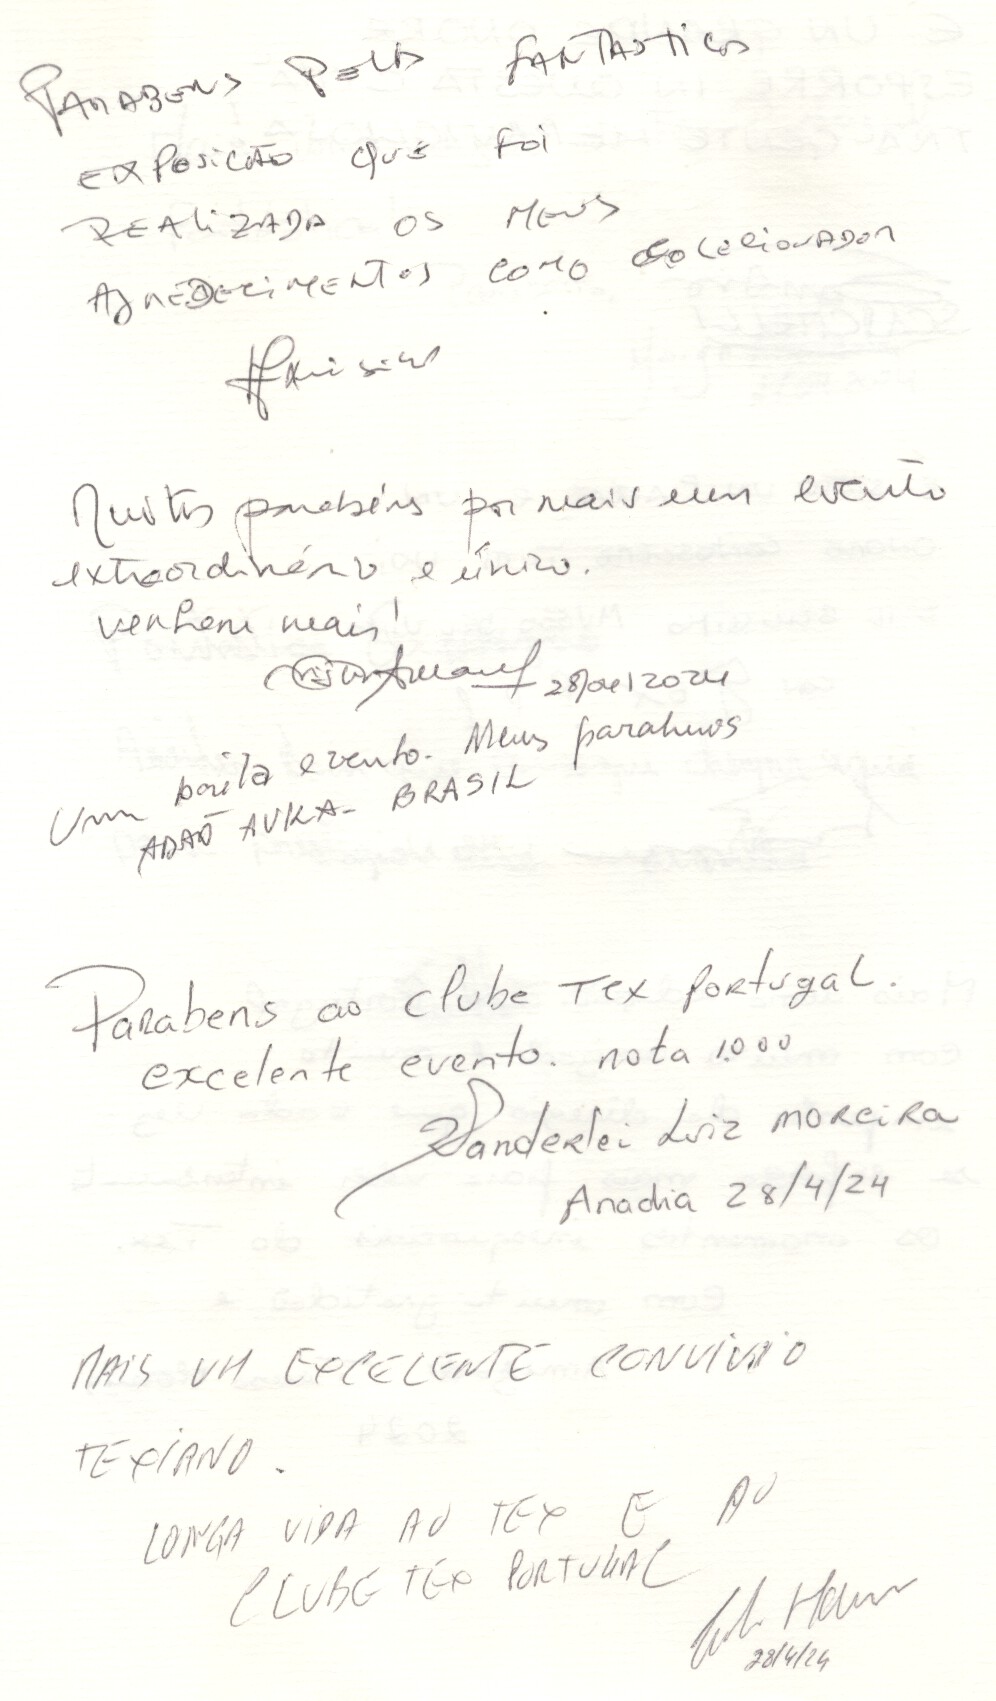 PARABENS PELA FANTASTICA
EXPOSICÃO QUE FOI
REALIZADA OS MEUS
AGREDECIMENTOS COMO COLECIONADOR
Muitos parabéns por mais um evento
extraordinário e único.
venham mais!
28/04/2024
Uma bonita evento. Meus parabens
ADÃO - BRASIL
Parabens ao clube Tex Portugal.
excelente evento. nota 1.000
Vanderlei Luiz Moreira
Anadia 28/4/24
MAIS UM EXCELENTE CONVÍVIO
TEXIANO.
LONGA VIDA AO TEX E AO
CLUBE TEX PORTUGAL
28/4/24